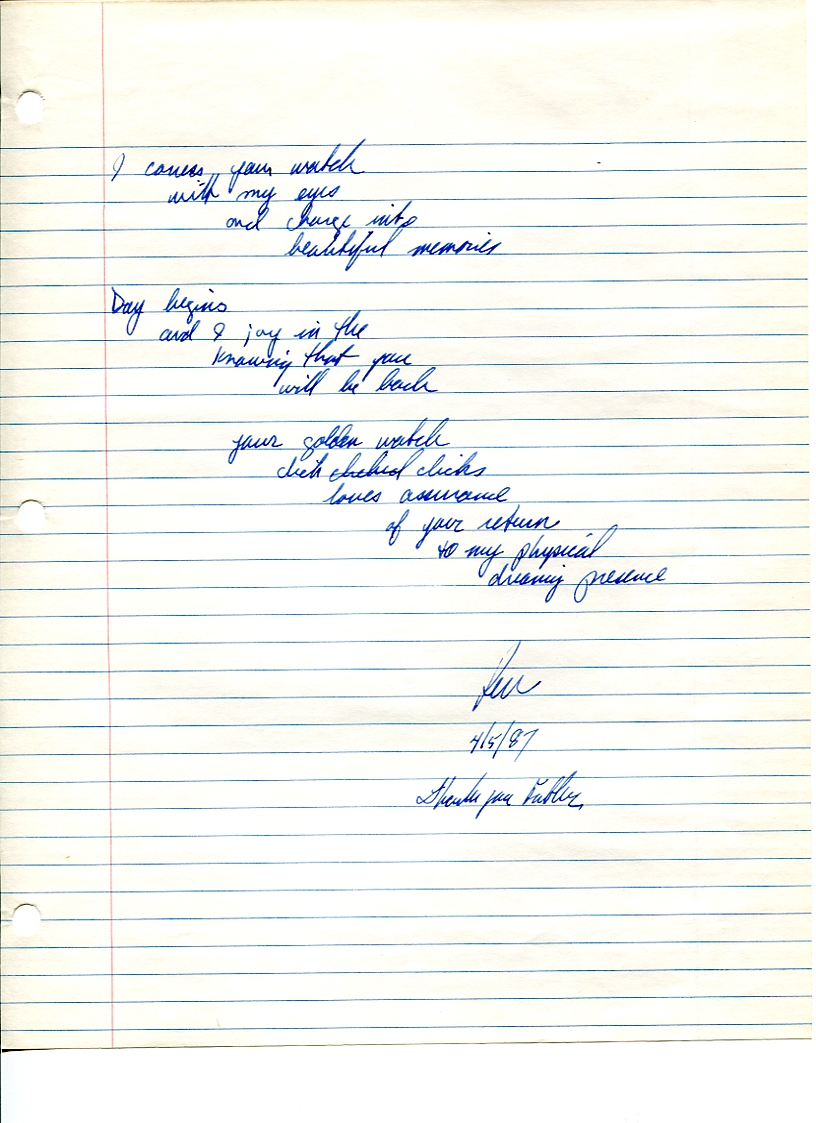 I caress your watch
with my eyes
and charge into
beautiful memories
Day begins
and I joy in the
knowing that you
will be back
your golden watch
clicks
loves assurance
of your return
to my physical
dreaming presence
4/5/87
Thank you